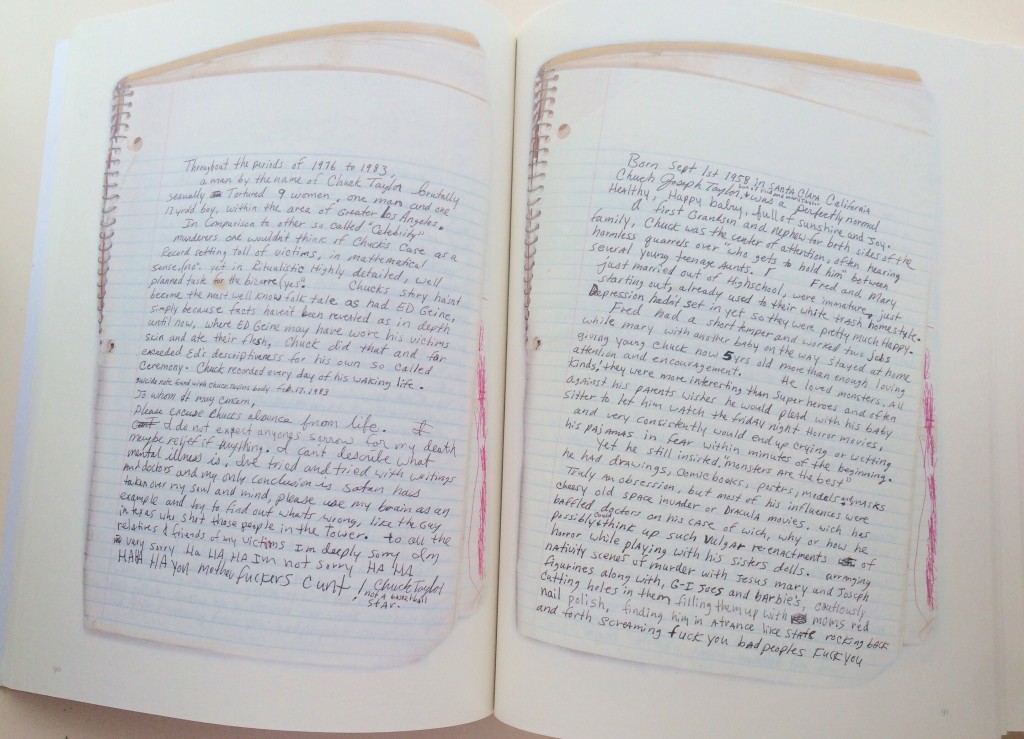 Throughout the periods of 1976 to 1983,
a man by the name of Chuck Taylor brutally
sexually Tortured 9 women, one man and one
13 yr old boy, within the area of Greater Los Angeles.
In Comparison to other so called "Celebrity"
murderers one wouldn't think of Chucks Case as a
Record setting toll of victims, in mathematical
sense, (no". yet in Ritualistic Highly detailed, well
planned task for the bizarre (yes". Chucks story hasnt
become the most well know folk tale as had ED Geine,
simply because facts havent been reveiled as in depth
until now, where ED Geine may have wore his victims
skin and ate their flesh, Chuck did that and far
exceeded Ed's descriptiveness for his own so called
Ceremony. Chuck recorded every day of his waking life.
suicide note found with chuck taylors body. feb. 17. 1983
To whom it may concern,
please excuse Chucks absence from life. I
I do not expect anyones sorrow for my death
maybe relief if anything. I cant describe what
mental illness is, Ive tried and tried with writings
and doctors and my only conclusion is satan has
taken over my soul and mind, please use my brain as an
example and try to find out whats wrong, like the Guy
in texas who shot those people in the Tower. to all the
relatives & friends of my victims Im deeply sorry Im
very sorry Ha HA, HA Im not sorry HA HA
HAHA HA You mother fuckers Cunt! Chuck Taylor
not a basketball
STAR.
90
Born Sept 1st 1958 in Santa Clara California
Chuck Joseph Taylor, was a perfectly normal
Healthy, Happy baby, full of sunshine and Joy.
A first Grandson and nephew for both sides of the
family, Chuck was the center of attention, often hearing
harmless quarrels over "who gets to hold him" between
several young teenage Aunts. Fred and Mary,
just married out of Highschool, were immature, just
starting out, already used to their white trash homestyle.
Depression hadn't set in yet so they were pretty much happy.
Fred had a short temper and worked two jobs
while mary with another baby on the way stayed at home
giving young Chuck now 5 yrs old more than enough loving
attention and encouragement. He loved monsters. All
Kinds! they were more interesting than Super heroes and often
against his parents wishes he would plead with his baby
sitter to let him watch the friday night Horror movies,
and very consistently would end up crying or wetting
his pajamas in fear within minutes of the beginning.
Yet he still insisted, "monsters are the best"
he had drawings, Comic books, posters, models & masks
Truly an obsession, but most of his influences were
cheesy old space invader or Dracula movies. wich has
baffled doctors on his case of wich, why or how he
possibly could think up such vulgar re-enactments of
horror while playing with his sisters dolls. arrnging
nativity scenes of murder with Jesus mary and Joseph
figurines along with, G-I Joes and barbie's, cautiously
cutting holes in them filling them up with moms red
nail polish, finding him in a trance like state rocking back
and forth screaming fuck you bad peoples Fuck you
91